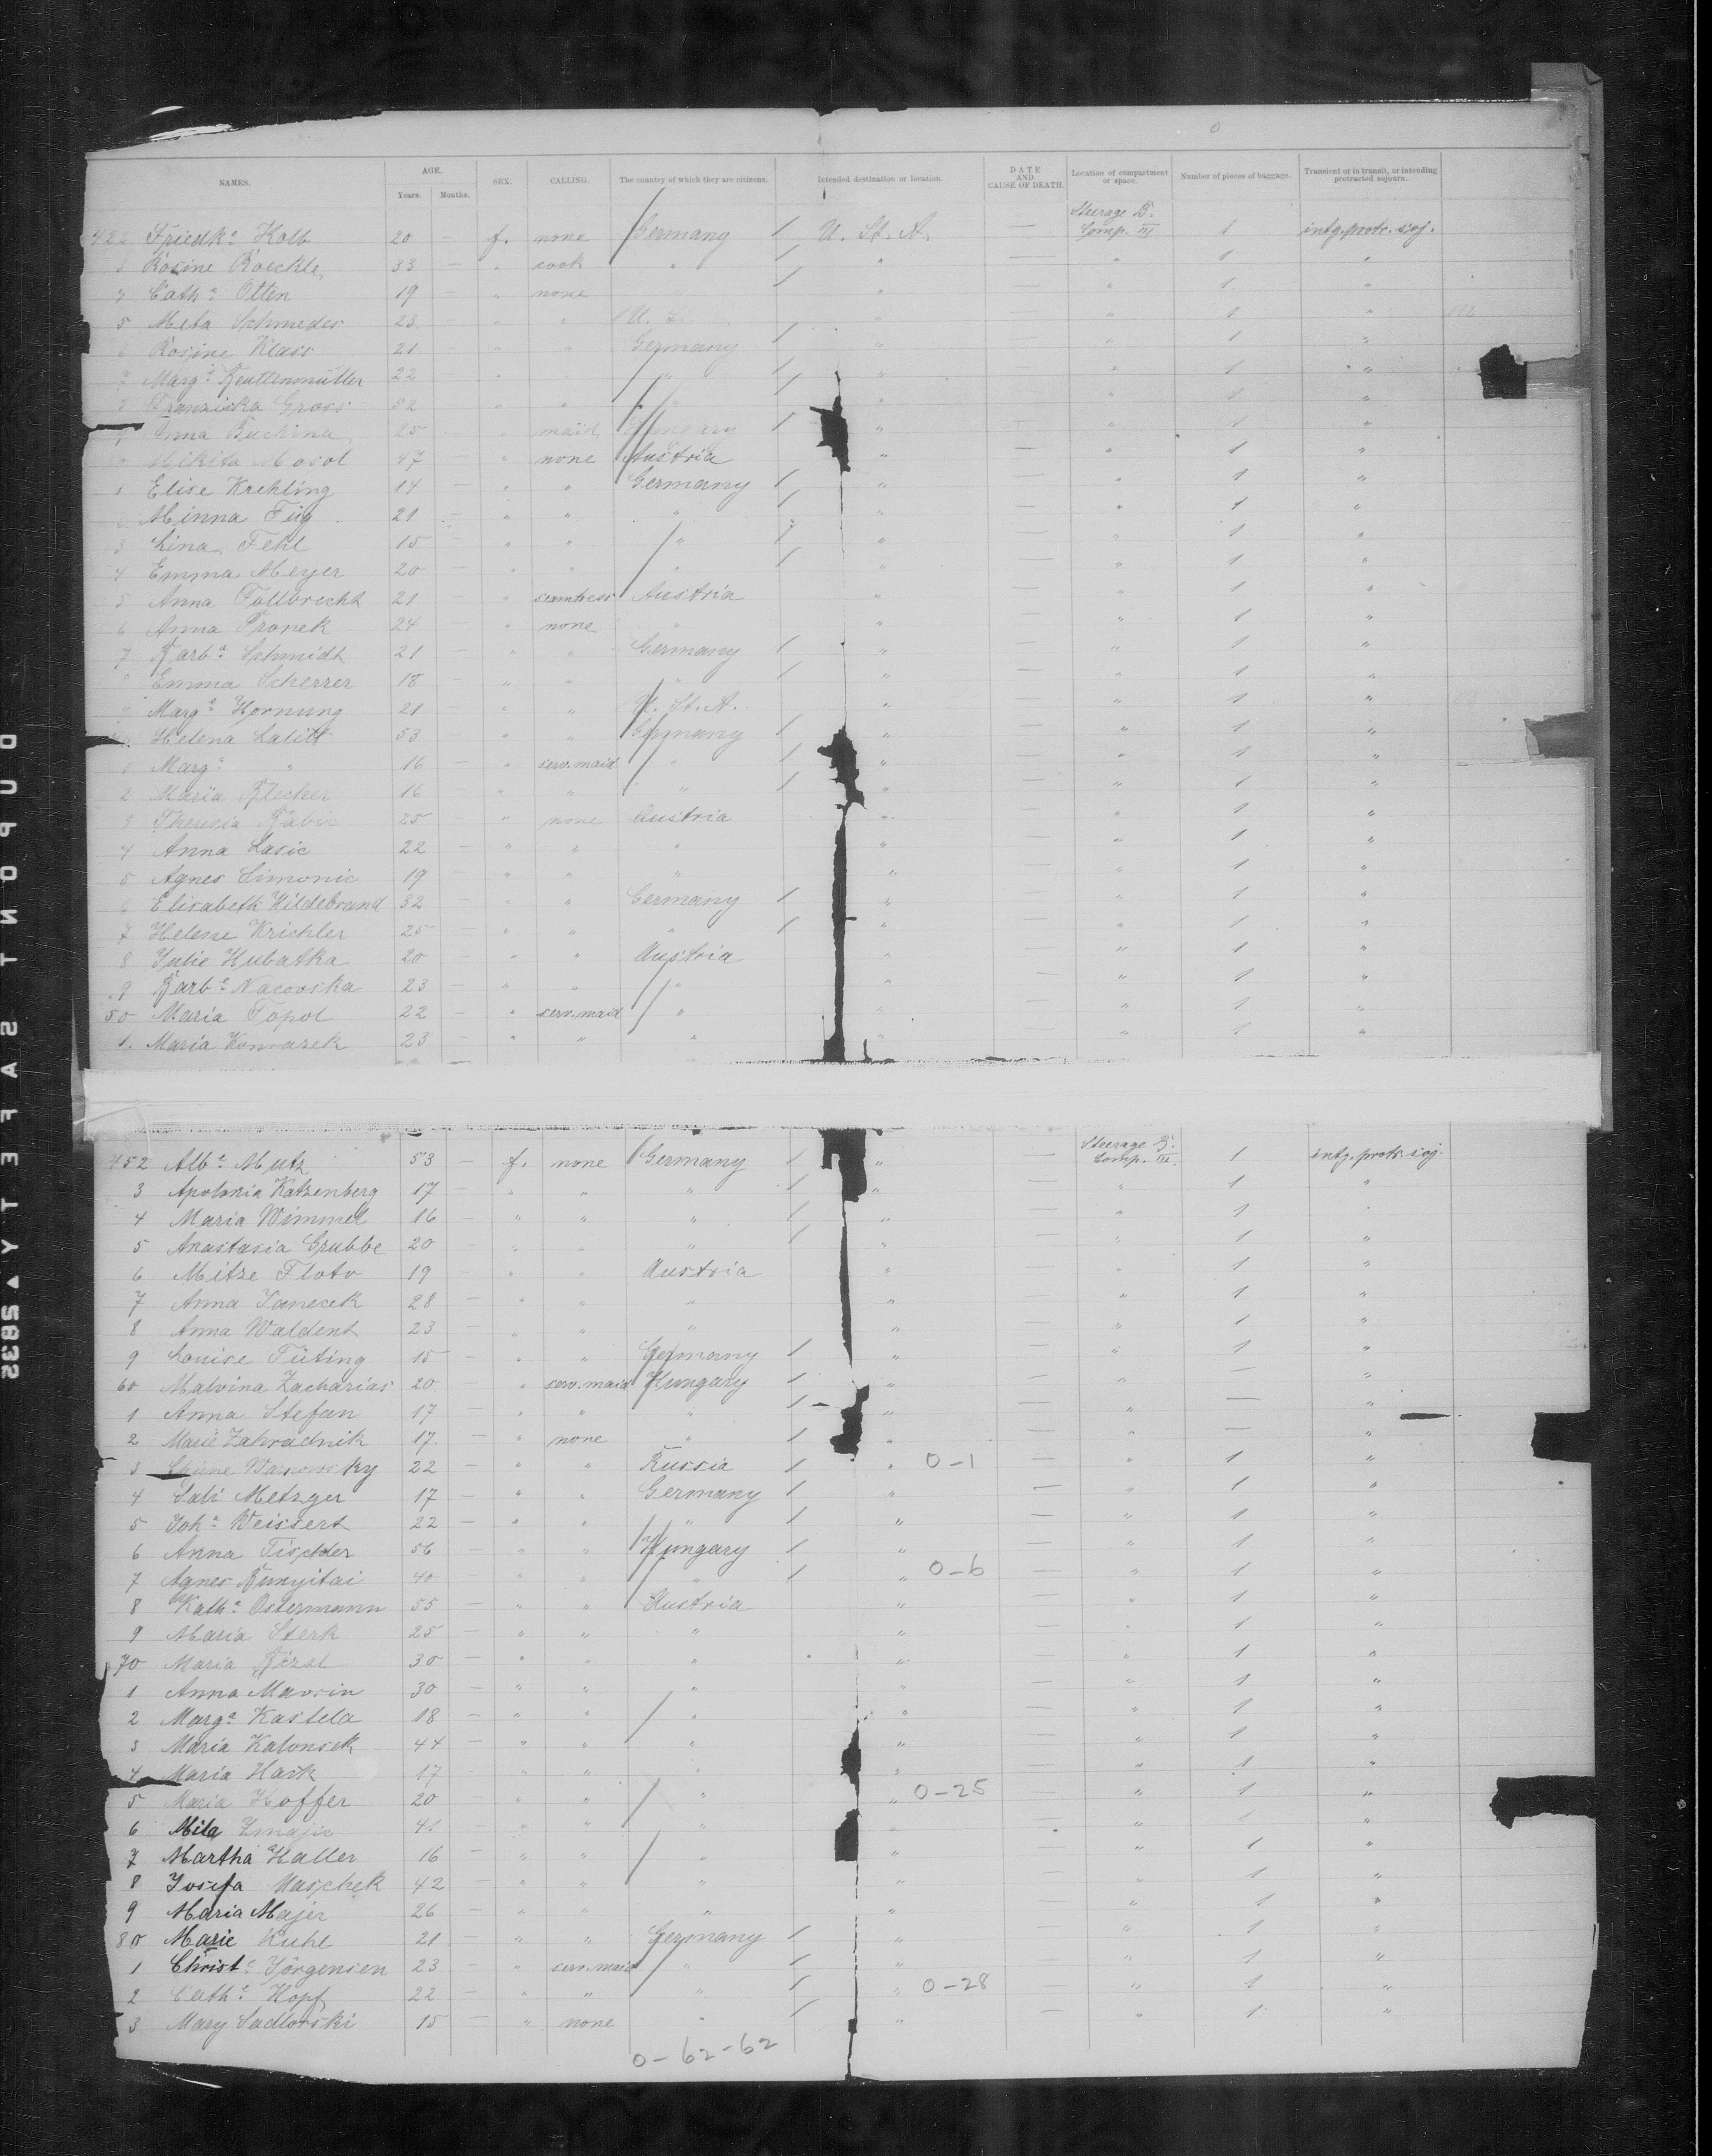 NAMES. AGE. Years. Months. SEX. CALLING. The country of which they are citizens. Intended destination or location. DATE AND CAUSE OF DEATH. Location of compartment or space. Number of pieces of baggage. Transient or in transit, or intending protracted sojourn.
422 Friedk.a Kolb 20 f. none Germany / U. St. A. — Steerage B. Comp. III 1 intg. protr. soj.
3 Rosine Roeckle 33 — " cook " / " — " 1 "
4 Cath.a Otten 19 — " none " / " — " 1 "
5 Meta Schmedes 23 — " " U. S. " — " 1 "
6 Rosine Klass 21 — " " Germany / " — " 1 "
7 Marg.a Reuttenmüller 22 — " " " / " — " 1 "
8 Franziska Gross 52 — " " " / " — " 1 "
Anna 25 — " maid Hungary / " — " 1 "
Mikita Mosol 47 — " none Austria " — " 1 "
1 Elise Krehling 14 — " " Germany / " — " 1 "
2 Minna Füg 21 — " " " / " — " 1 "
3 Lina Fehl 15 — " " " / " — " 1 "
4 Emma Meyer 20 — " " " / " — " 1 "
5 Anna Follbrecht 21 — " seamtress Austria " — " 1 "
6 Anna Pronek 24 — " none " " — " 1 "
7 Barb.a Schmidt 21 — " " Germany / " — " 1 "
8 Emma Scherrer 18 — " " " / " — " 1 "
9 Marg.a Hornung 21 — " " U. St. A. " — " 1 "
Helena 53 — " " Germany / " — " 1 "
1 Marg.a " 16 — " serv. maid " / " — " 1 "
2 Maria Blecher 16 — " " " / " — " 1 "
3 Theresia Babic 25 — " none Austria " — " 1 "
4 Anna Lasic 22 — " " " " — " 1 "
5 Agnes Simonic 19 — " " " " — " 1 "
6 Elisabeth Hildebrand 32 — " " Germany / " — " 1 "
7 Helene Krichler 25 — " " " / " — " 1 "
8 Julie Hubatka 20 — " " Austria " — " 1 "
9 Barb.a Nacovska 23 — " " " " — " 1 "
50 Maria Topol 22 — " serv. maid " " — " 1 "
1. Maria Komarek 23 — " " " " — " 1 "
452 Alb.a Mutz 53 — f. none Germany / " — Steerage B. Comp. III. 1 intg. protr. soj.
3 Apolonia Katzenberg 17 — " " " / " — " 1 "
4 Maria Wimmel 16 — " " " / " — " 1 "
5 Anastasia Grubbe 20 — " " " / " — " 1 "
6 Mitze Floto 19 — " " Austria " — " 1 "
7 Anna Janecek 28 — " " " " — " 1 "
8 Anna Waldent 23 — " " " " — " 1 "
9 Louise Füting 15 — " " Germany / " — " 1 "
60 Malvina Zacharias 20 — " serv. maid Hungary / " — " — "
1 Anna Stefan 17 — " " " / " — " — "
2 Marie Zahradnik 17. — " none " / " — " — "
3 22 — " " Russia / " 0-1 — " 1 "
4 Sali Metzger 17 — " " Germany / " — " 1 "
5 Joh.a Weissert 22 — " " " / " — " 1 "
6 Anna Tischler 56 — " " Hungary / " — " 1 "
7 Agnes Bunyitai 40 — " " " / " 0-6 — " 1 "
8 Kath.a Ostermann 55 — " " Austria " — " 1 "
9 Maria Sterk 25 — " " " " — " 1 "
70 Maria Bizal 30 — " " " " — " 1 "
1 Anna Mavrin 30 — " " " " — " 1 "
2 Marg.a Kastela 18 — " " " " — " 1 "
3 Maria Kalonsek 44 — " " " " — " 1 "
4 Maria Hask 17 — " " " " — " 1 "
5 Maria Hoffer 20 — " " " " 0-25 — " 1 "
6 Mila Zmajic 41 — " " " " — " 1 "
7 Martha Haller 16 — " " " " — " 1 "
8 Josefa Maschek 42 — " " " " — " 1 "
9 Maria Majer 26 — " " " " — " 1 "
80 Marie Kuhl 21 — " " Germany / " — " 1 "
1 Christ.e Jörgensen 23 — " serv. maid " / " — " 1 "
2 Cath.a Kopf 22 — " " " / " 0-28 — " 1 "
3 Mary Sadlowski 15 — " none " / " — " 1 "
0-62-62
DUPONT SAFETY ▲ 5835